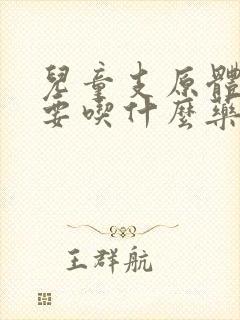 兒童支原體
要喫什麼藥
王群航